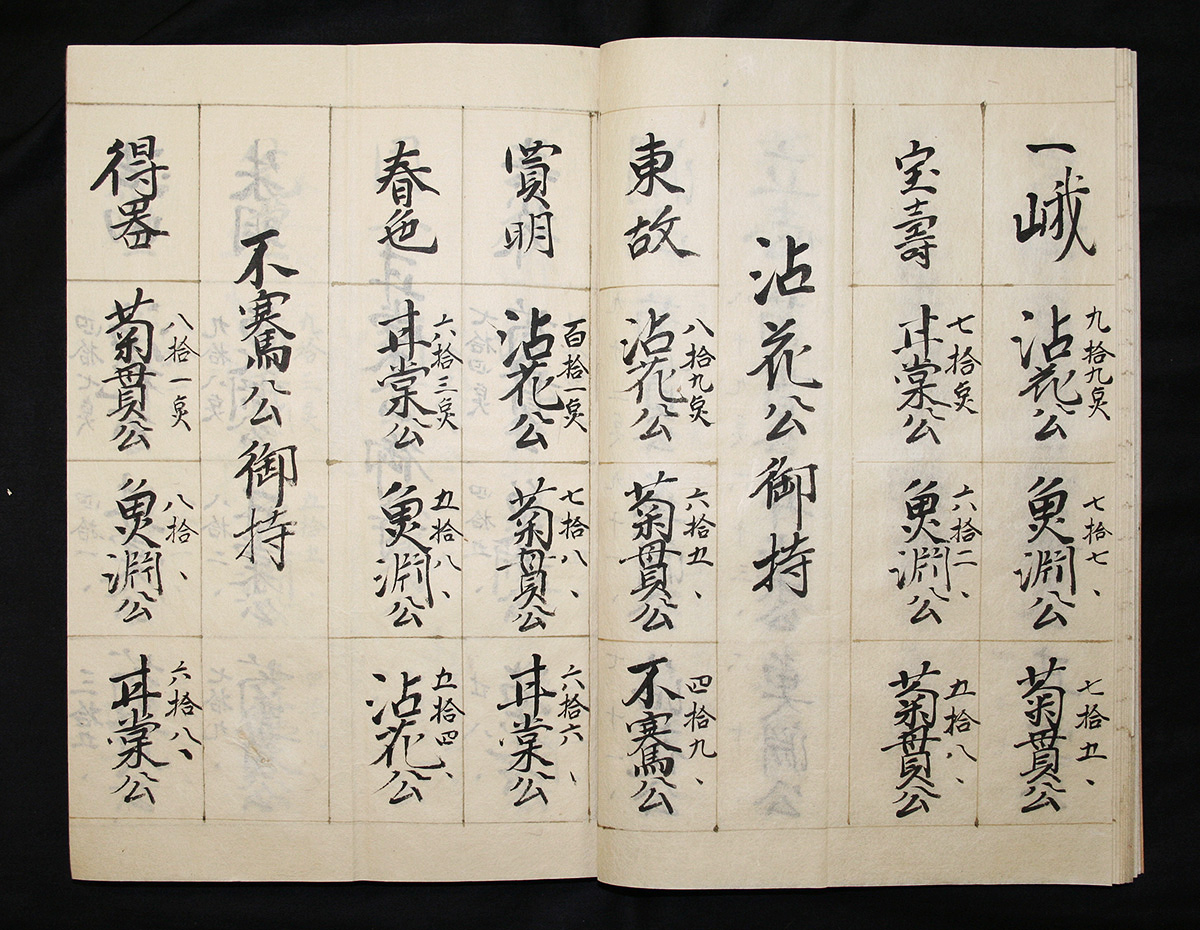 一峨
九拾九点
沾花公
七拾七、
魚淵公
七拾五、
菊貫公
宝壽
七拾点
甘棠公
六拾二、
魚淵公
五拾八、
菊貫公
沾花公御持
東故
八拾九点
沾花公
六拾五、
菊貫公
四拾九、
不騫公
賞明
百拾一点
沾花公
七拾八、
菊貫公
六拾六、
甘棠公
春色
六拾三点
甘棠公
五拾八、
魚淵公
五拾四、
沾花公
不騫公御持
得器
八拾一点
菊貫公
八拾、
魚淵公
六拾八、
甘棠公